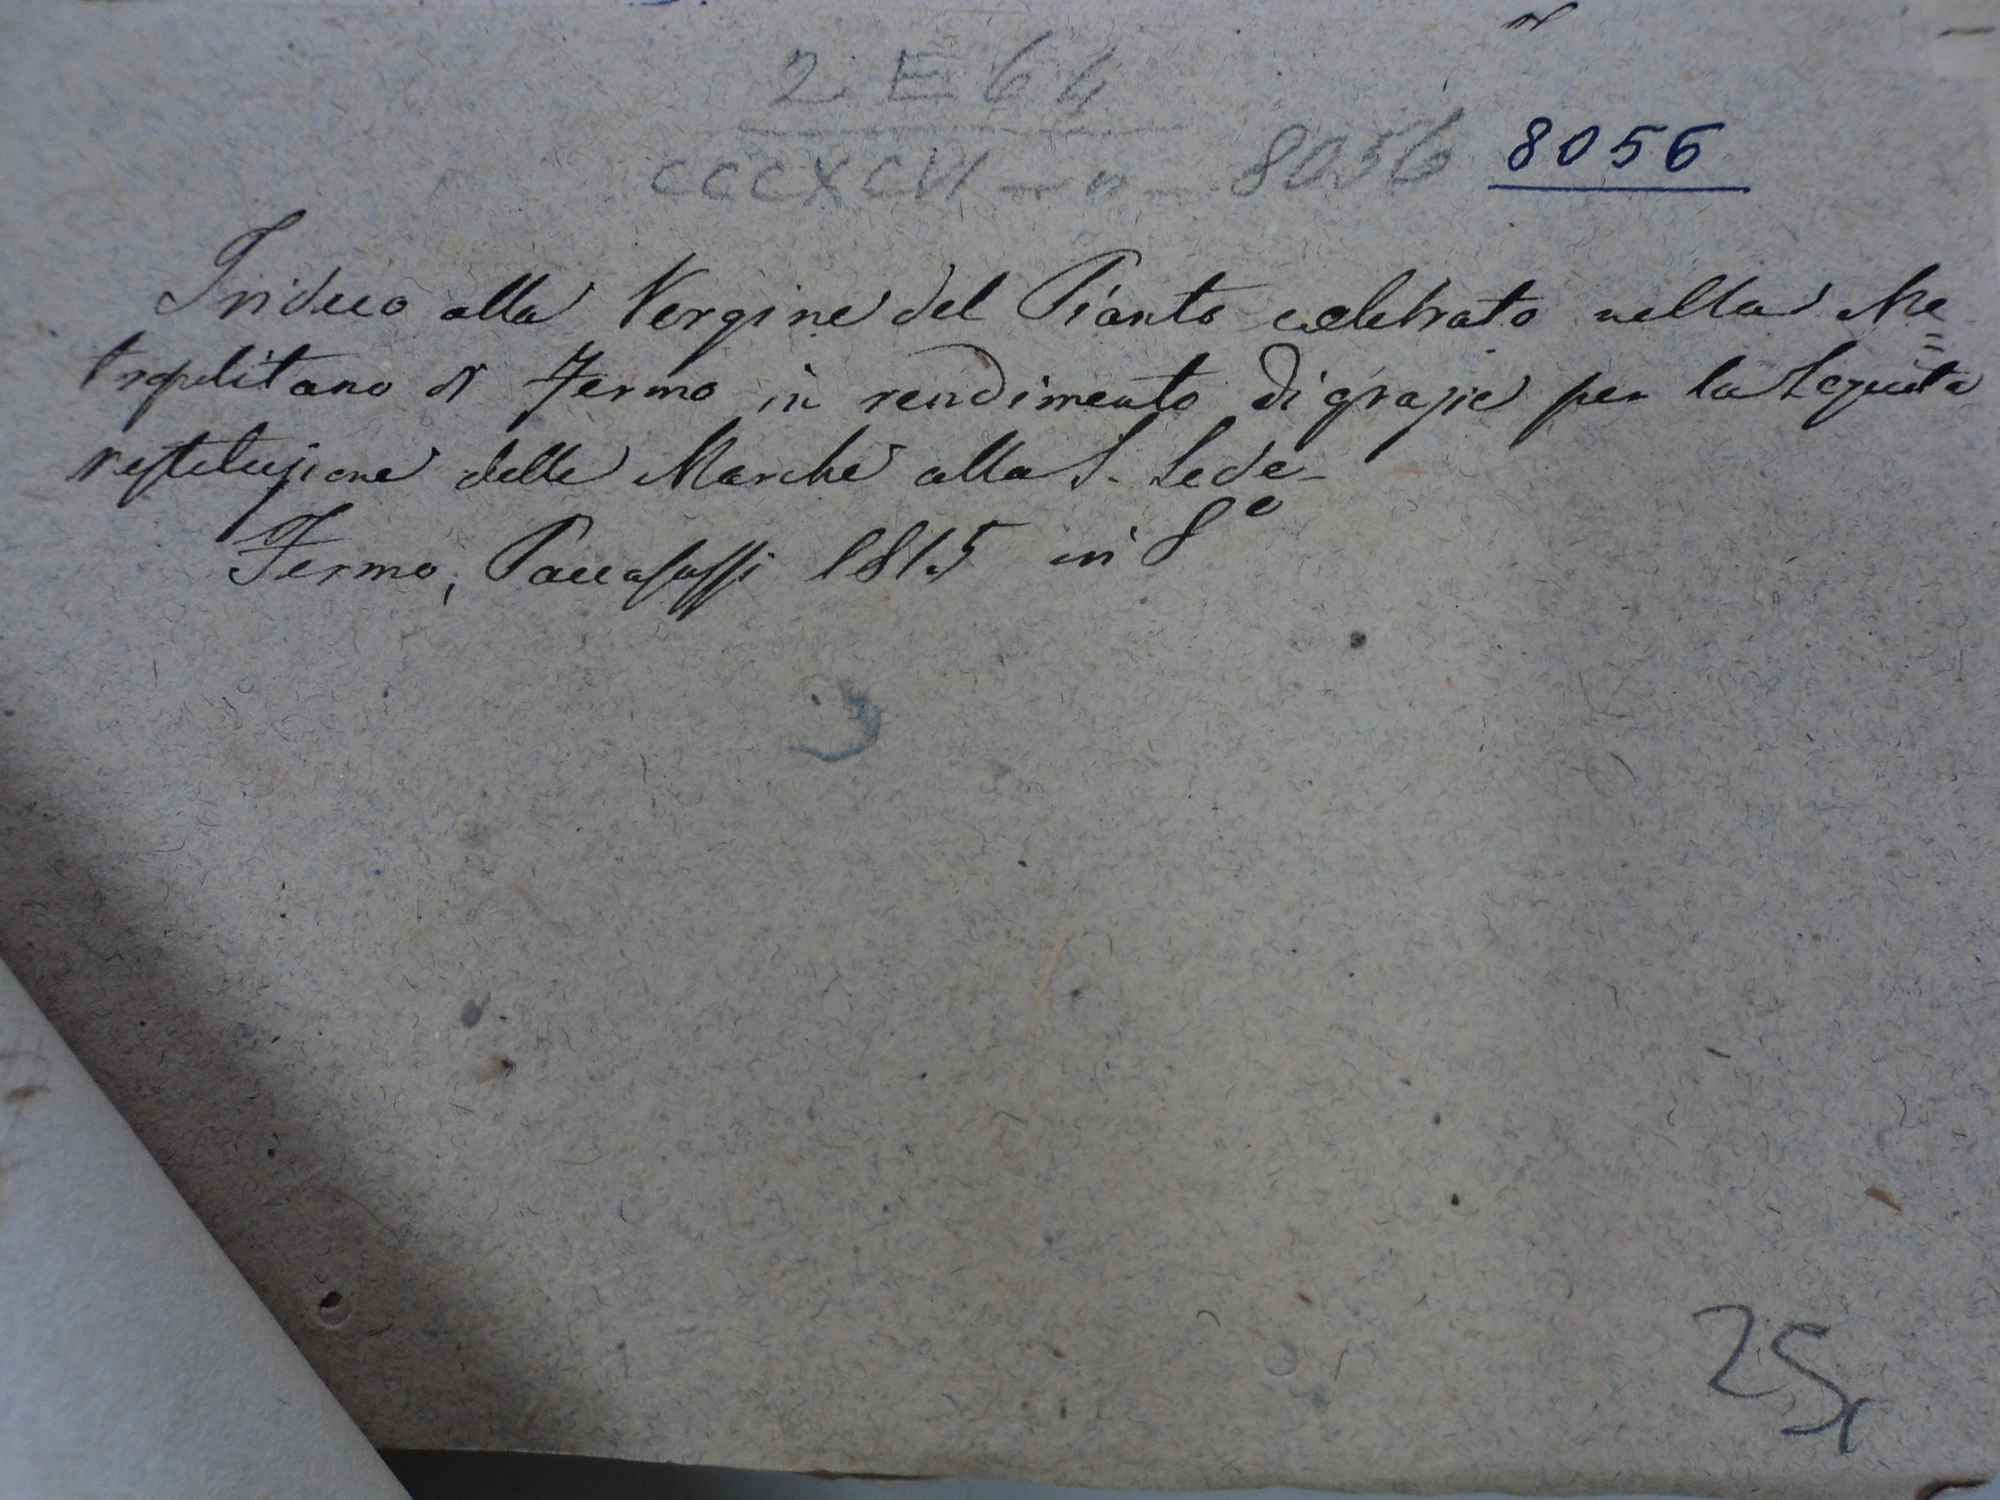 2 E 64
CCCXCVI — n — 8056 8056
Triduo alla Vergine del Pianto celebrato nella Me=
tropolitana di Fermo in rendimento di grazie per la seguita
restituzione delle Marche alla S. Sede
Fermo, Paccasassi 1815 in 8º
25